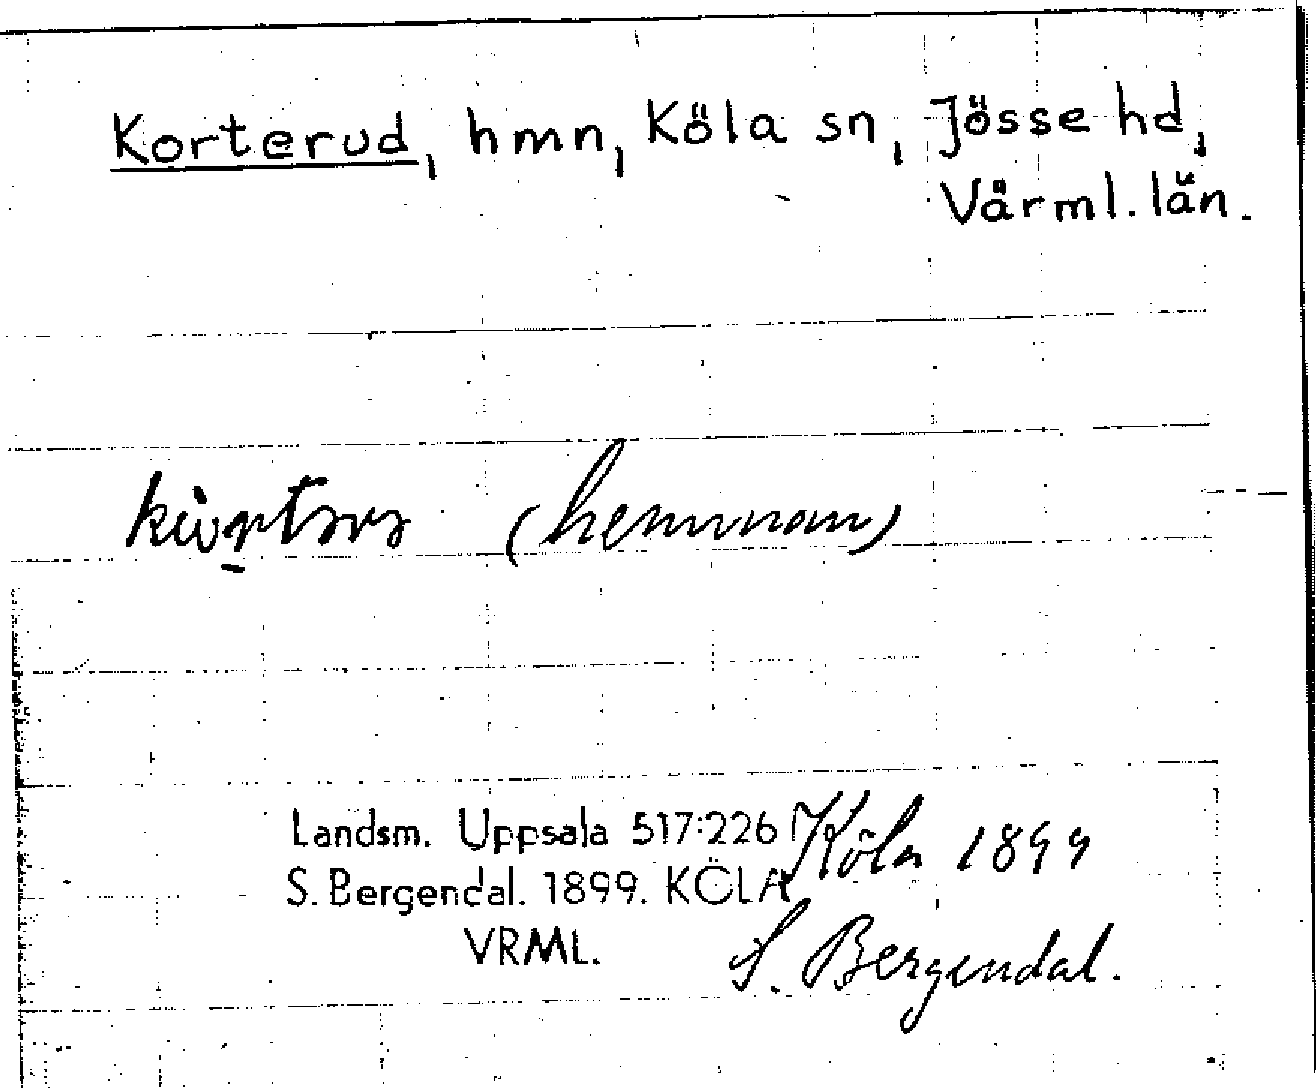 Korterud, hmn, Köla sn, Jösse hd,
Värml. län.
(hemman)
Landsm. Uppsala 517:226 Köla 1899
S. Bergendal. 1899. KÖLA
VRML. S. Bergendal.